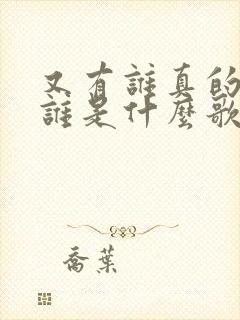 又有誰真的
誰是什麼歌
喬葉